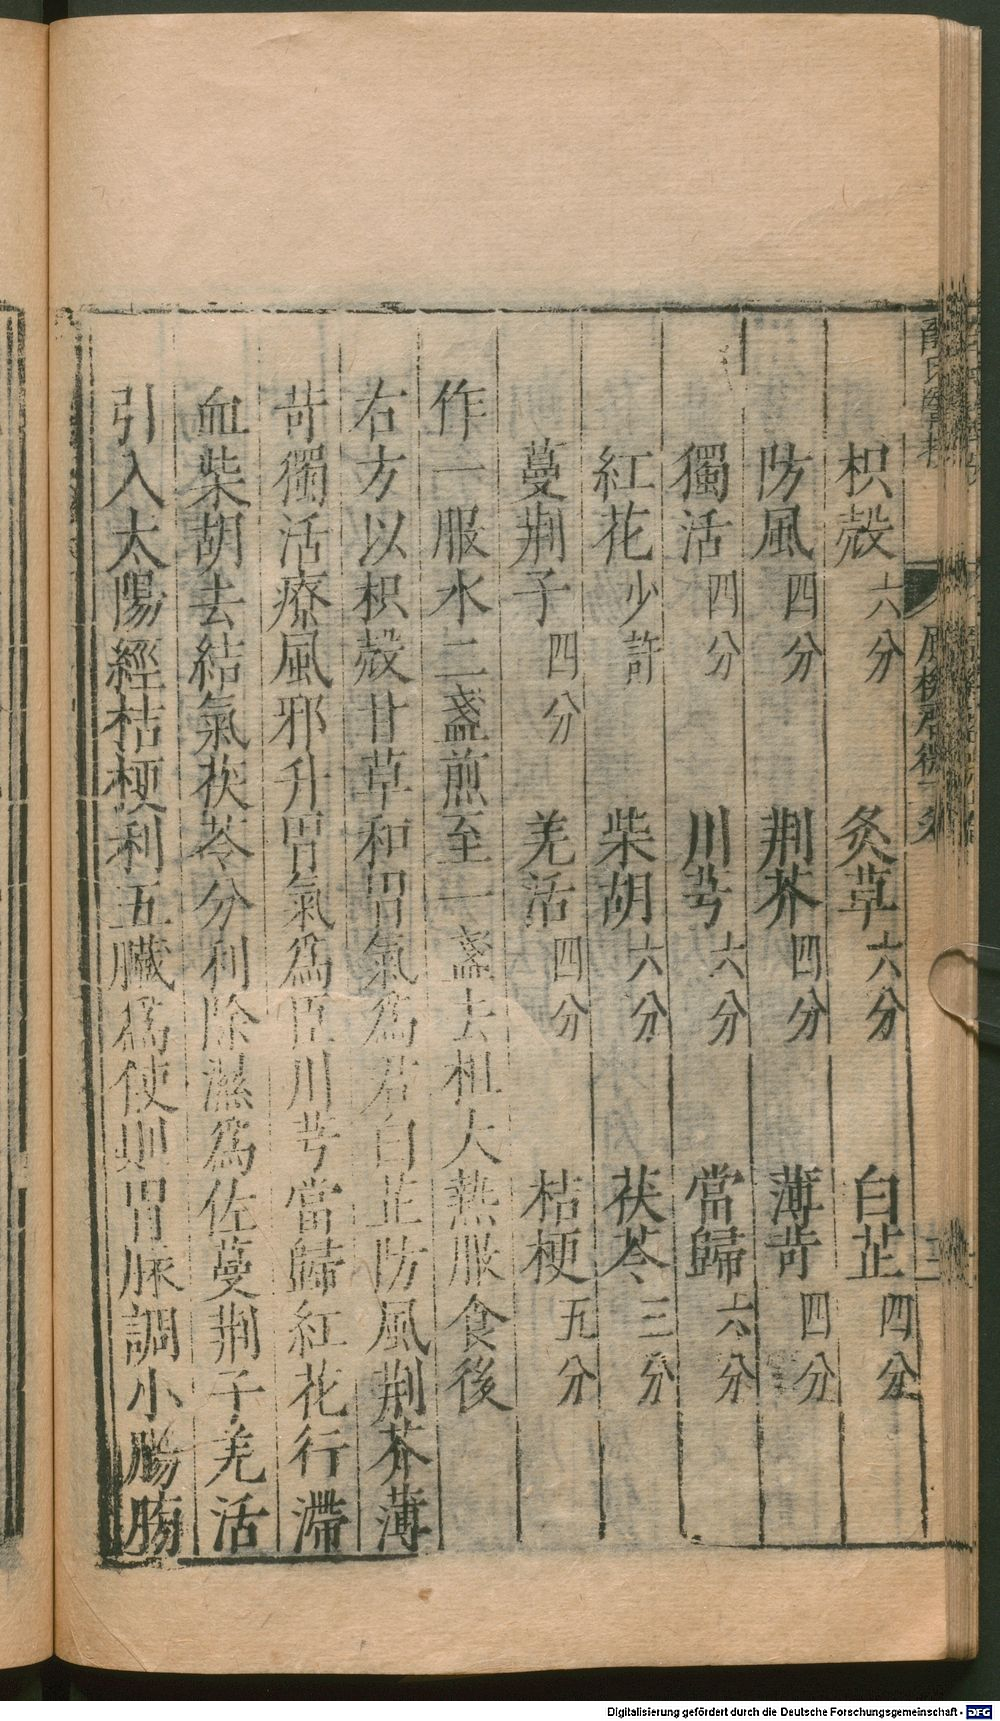 枳殻六分 灸草六分 白芷四分
防風四分 荆芥四分 薄苛四分
獨活四分 川芎六分 當歸六分
紅花少許 柴胡六分 茯苓三分
蔓荆子四分 羌活四分 桔梗五分
作一服水二盞煎至一盞去柤大熱服食後
右方以枳殻甘草和胃氣爲君白芷防風荆芥薄
苛獨活療風邪升胃氣爲臣川芎當歸紅花行滯
血柴胡去結氣茯苓分利除濕爲佐蔓荆子羌活
引入太陽經桔梗利五臟爲使則胃脉調小腸膀
Digitalisierung gefördert durch die Deutsche Forschungsgemeinschaft - DFG